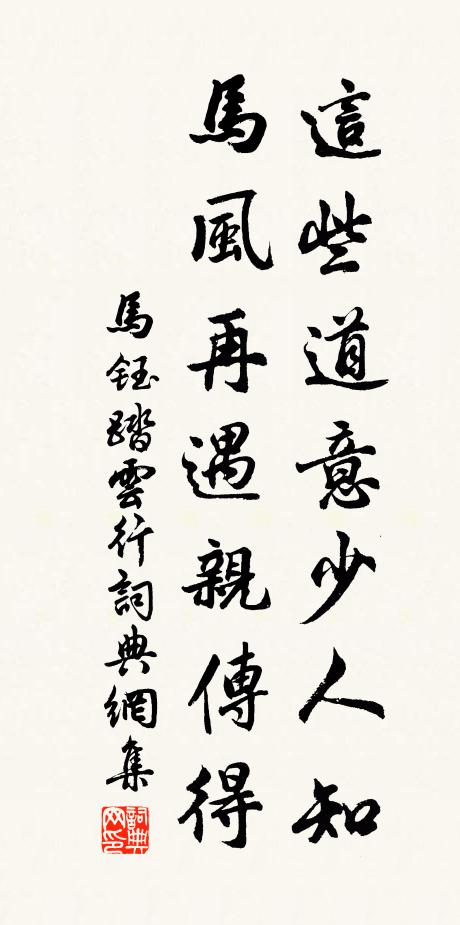 這些道意少人知
馬風再遇親傳得
馬鈺踏雲行詞典網集
詞典网印